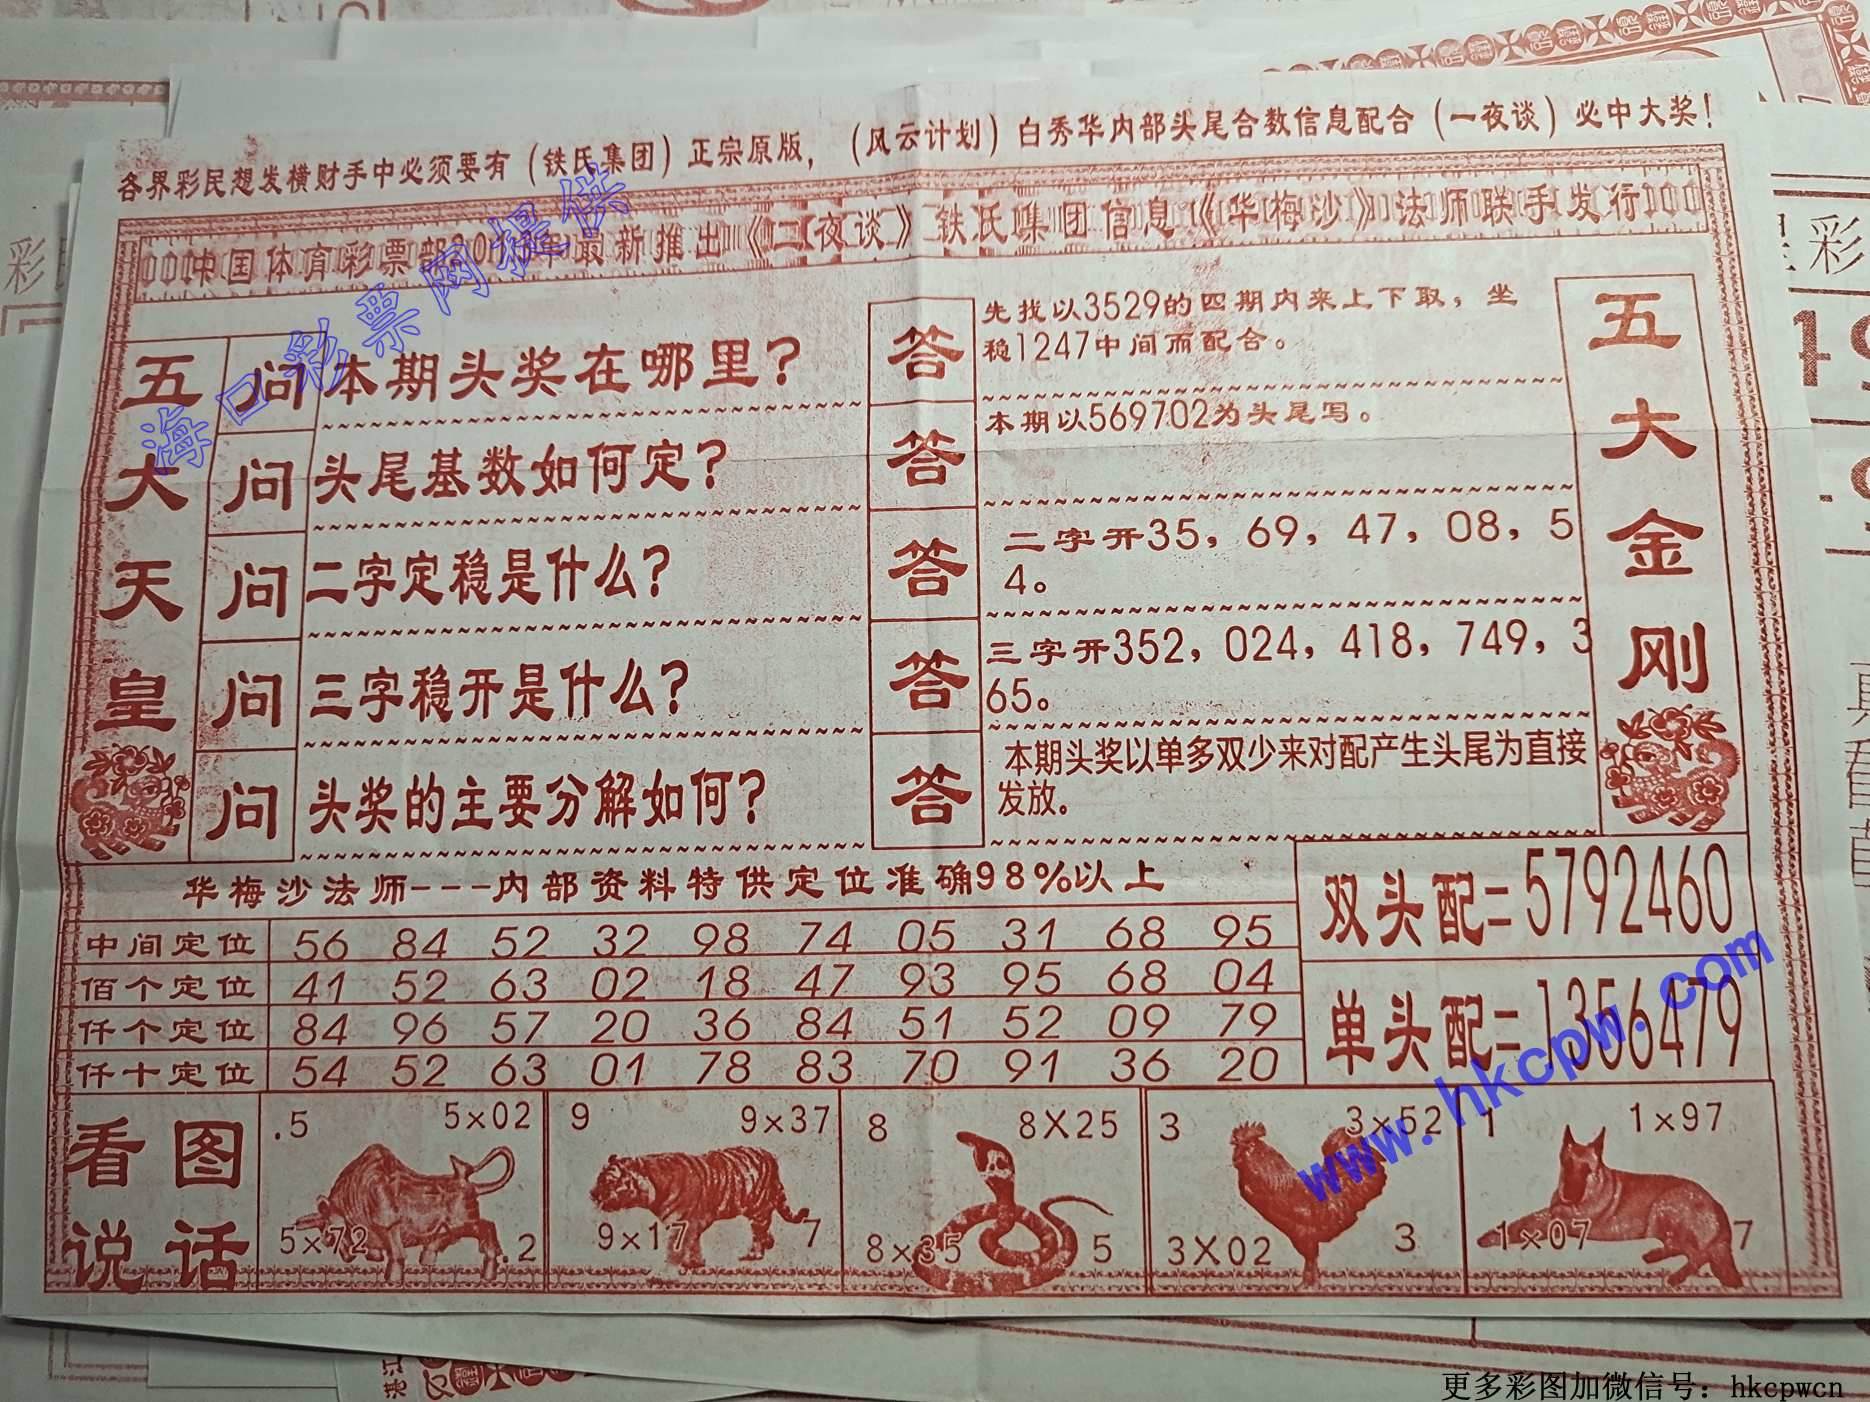 各界彩民想发横财手中必须要有（铁氏集团）正宗原版，（风云计划）白秀华内部头尾合数信息配合（一夜谈）必中大奖！
中国体育彩票部20 年最新推出《二夜谈》铁氏集团信息《华梅沙》法师联手发行
五大天皇
问 本期头奖在哪里？
答 先找以3529的四期内来上下取，坐
稳1247中间而配合。
问 头尾基数如何定？
答 本期以569702为头尾写。
问 二字定稳是什么？
答 二字开35，69，47，08，5
4。
问 三字稳开是什么？
答 三字开352，024，418，749，3
65。
问 头奖的主要分解如何？
答 本期头奖以单多双少来对配产生头尾为直接
发放。
五大金刚
华梅沙法师---内部资料特供定位准确98%以上
中间定位 56 84 52 32 98 74 05 31 68 95
佰个定位 41 52 63 02 18 47 93 95 68 04
仟个定位 84 96 57 20 36 84 51 52 09 79
仟十定位 54 52 63 01 78 83 70 91 36 20
双头配=5792460
单头配=1356479
看图
说话
.5 5×02
5×72 .2
9 9×37
9×17 7
8 8X25
8×35 5
3 3×52
3X02 3
1 1×97
1×07 7
海口彩票网提供
www.hkcpw.com
彩
彩
港江
更多彩图加微信号：hkcpwcn